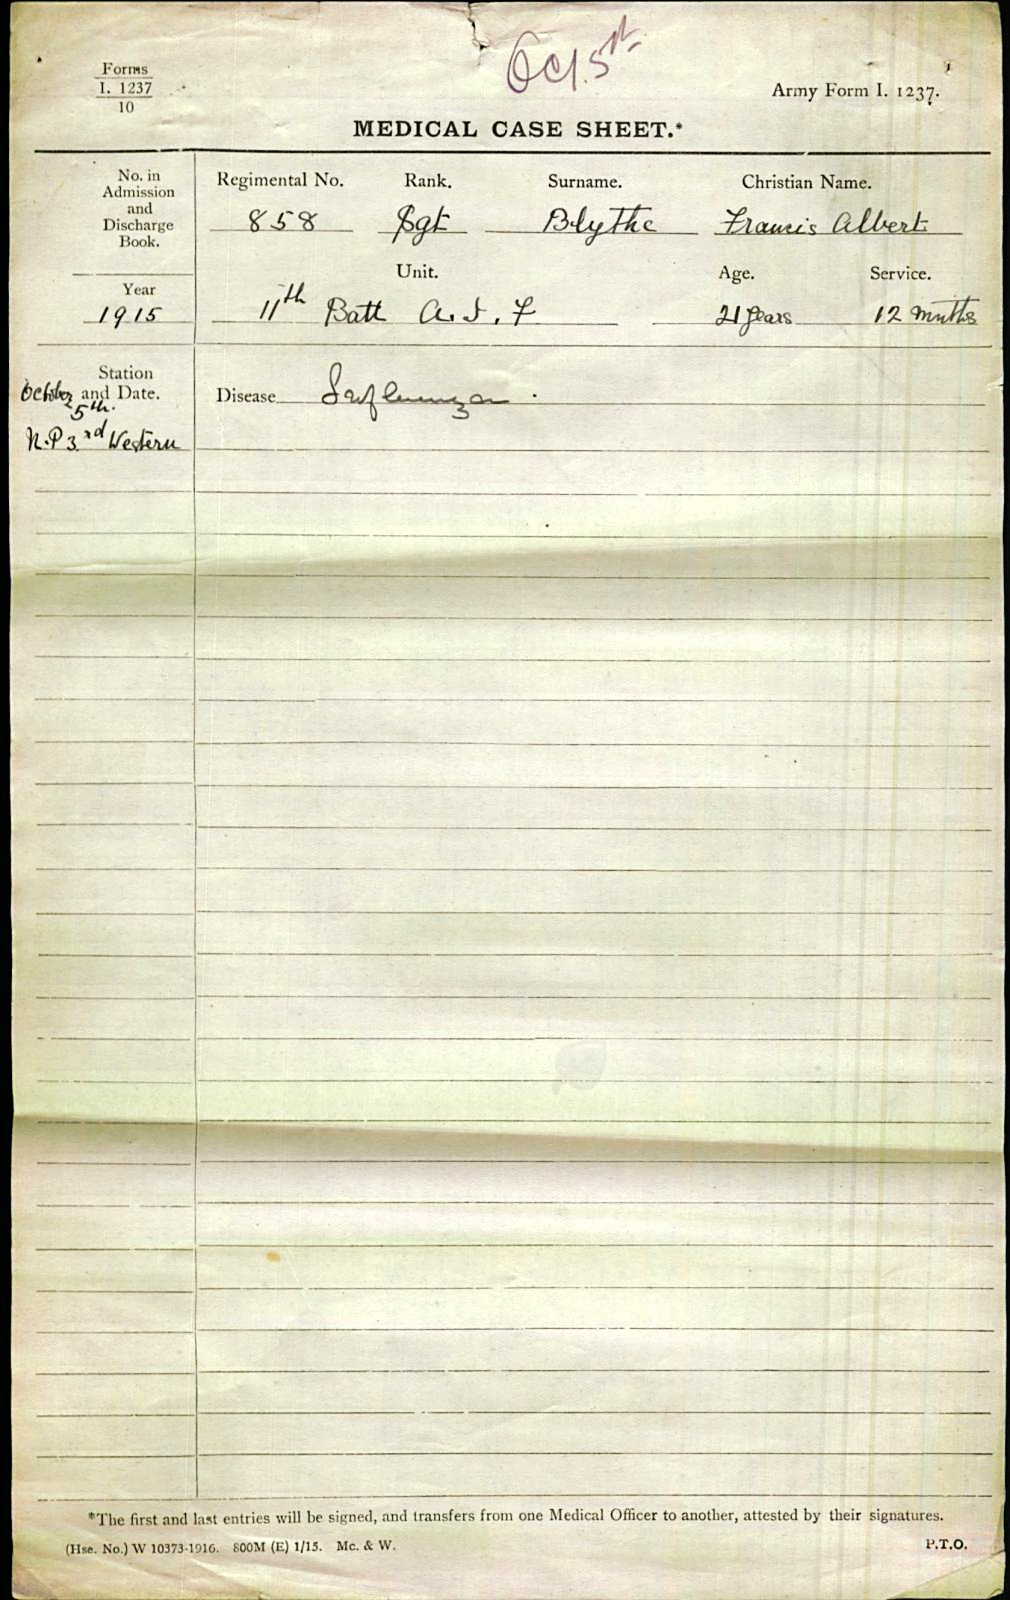 Oct 5th
Forms
I. 1237
10
Army Form I. 1237.
MEDICAL CASE SHEET.*
No. in
Admission
and
Discharge
Book.
Regimental No. Rank. Surname. Christian Name.
858 Sgt Blythe Francis Albert
Unit. Age. Service.
Year
1915 11th Batt A.I.F 21 years 12 months
Station
and Date.
October
5th.
N.P 3rd Western
Disease Influenza .
*The first and last entries will be signed, and transfers from one Medical Officer to another, attested by their signatures.
(Hse. No.) W 10373-1916. 800M (E) 1/15. Mc. & W. P.T.O.